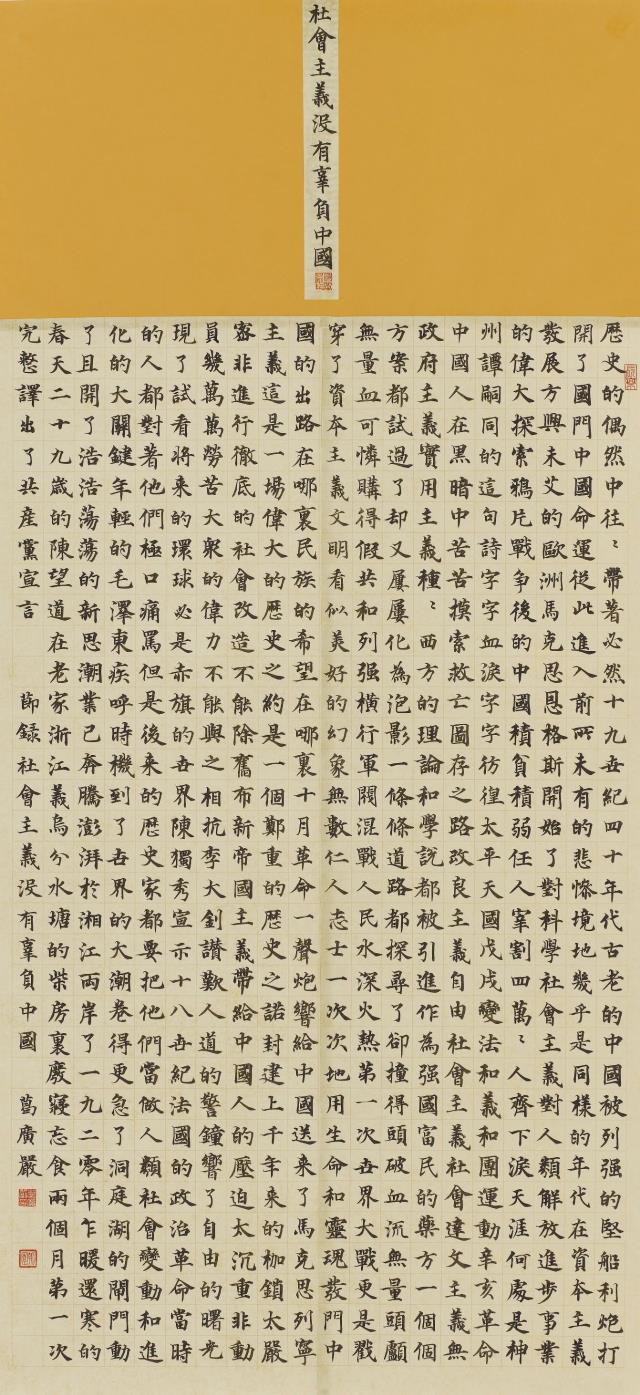 社會主義没有辜負中國
歷史的偶然中往〻帶著必然十九世紀四十年代古老的中國被列强的堅船利炮打
開了國門中國命運從此進入前所未有的悲慘境地幾乎是同樣的年代在資本主義
發展方興未艾的歐洲馬克思恩格斯開始了對科學社會主義對人類解放進步事業
的偉大探索鴉片戰爭後的中國積貧積弱任人宰割四萬〻人齊下淚天涯何處是神
州譚嗣同的這句詩字字血淚字字彷徨太平天國戊戌變法和義和團運動辛亥革命
中國人在黑暗中苦苦摸索救亡圖存之路改良主義自由社會主義社會達文主義無
政府主義實用主義種〻西方的理論和學説都被引進作為强國富民的藥方一個個
方案都試過了却又屢屢化為泡影一條條道路都探尋了卻撞得頭破血流無量頭顱
無量血可憐購得假共和列强橫行軍閥混戰人民水深火熱第一次世界大戰更是戳
穿了資本主義文明看似美好的幻象無數仁人志士一次次地用生命和靈魂發門中
國的出路在哪裏民族的希望在哪裏十月革命一聲炮響給中國送來了馬克思列寧
主義這是一場偉大的歷史之約是一個鄭重的歷史之諾封建上千年來的枷鎖太嚴
密非進行徹底的社會改造不能除舊布新帝國主義帶給中國人的壓迫太沉重非動
員幾萬萬勞苦大衆的偉力不能與之相抗李大釗讚歎人道的警鐘響了自由的曙光
現了試看將來的環球必是赤旗的世界陳獨秀宣示十八世紀法國的政治革命當時
的人都對著他們極口痛罵但是後來的歷史家都要把他們當做人類社會變動和進
化的大關鍵年輕的毛澤東疾呼時機到了世界的大潮卷得更急了洞庭湖的閘門動
了且開了浩浩蕩蕩的新思潮業已奔騰澎湃於湘江兩岸了一九二零年乍暖還寒的
春天二十九歲的陳望道在老家浙江義烏分水塘的柴房裏廢寢忘食兩個月第一次
完整譯出了共產黨宣言 節録社會主義没有辜負中國 葛廣嚴